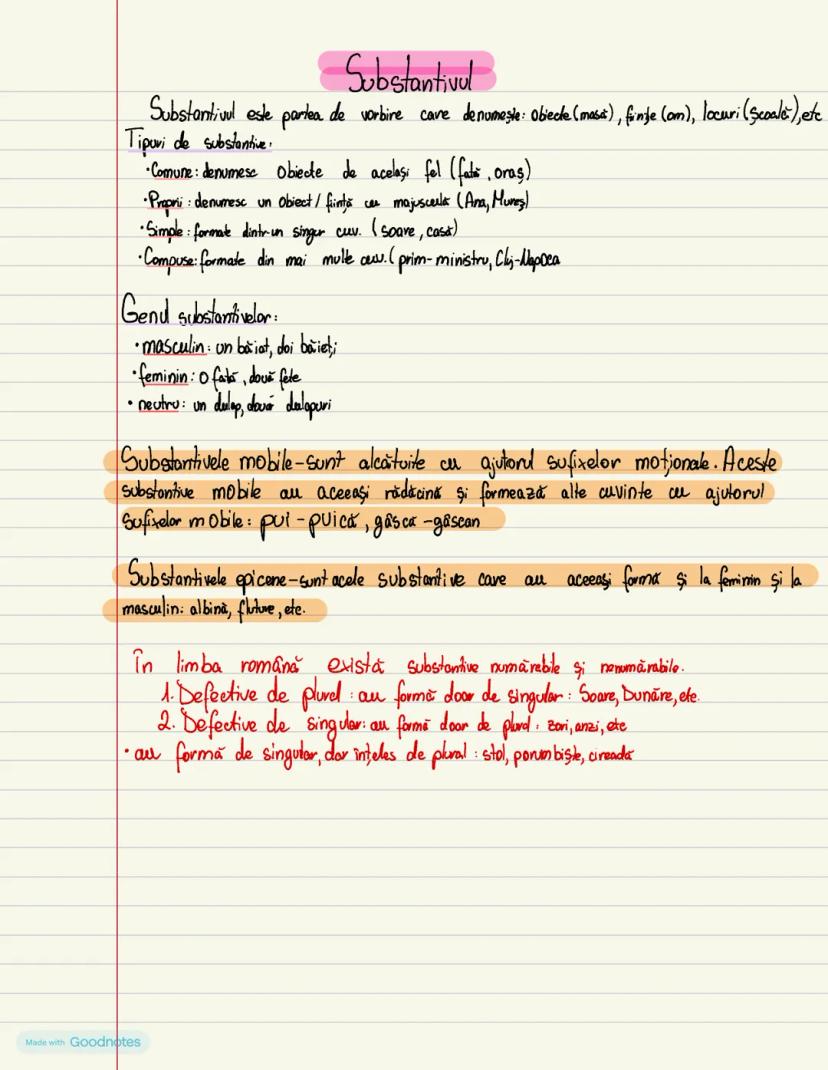 Substantivul
Substantivul este partea de vorbire care denumește: obiecte (masă), ființe (om), locuri (școală), etc
Tipuri de substantive:
•Comune: denumesc obiecte de același fel (fată, oraș)
•Proprii: denumesc un obiect/ființă cu majusculă (Ana, Mureș)
•Simple: formate dintr-un singur cuv. (soare, casă)
•Compuse: formate din mai multe cuv. (prim-ministru, Cluj-Napoca
Genul substantivelor:
•masculin: un băiat, doi băieți
•feminin: o fată, două fete
•neutru: un dulap, două dulapuri
Substantivele mobile-sunt alcătuite cu ajutorul sufixelor moționale. Aceste
substantive mobile au aceeași rădăcină și formează alte cuvinte cu ajutorul
sufixelor mobile: pui-puică, gâscă-gâscan
Substantivele epicene-sunt acele substantive care au aceeași formă și la feminin și la
masculin: albină, fluture, etc.
În limba română există substantive numărabile și nenumărabile.
1. Defective de plural: au formă doar de singular: Soare, Dunăre, etc.
2. Defective de singular: au formă doar de plural: zori, anzi, etc
•au formă de singular, dar înțeles de plural: stol, porumbiște, cireadă
Made with Goodnotes